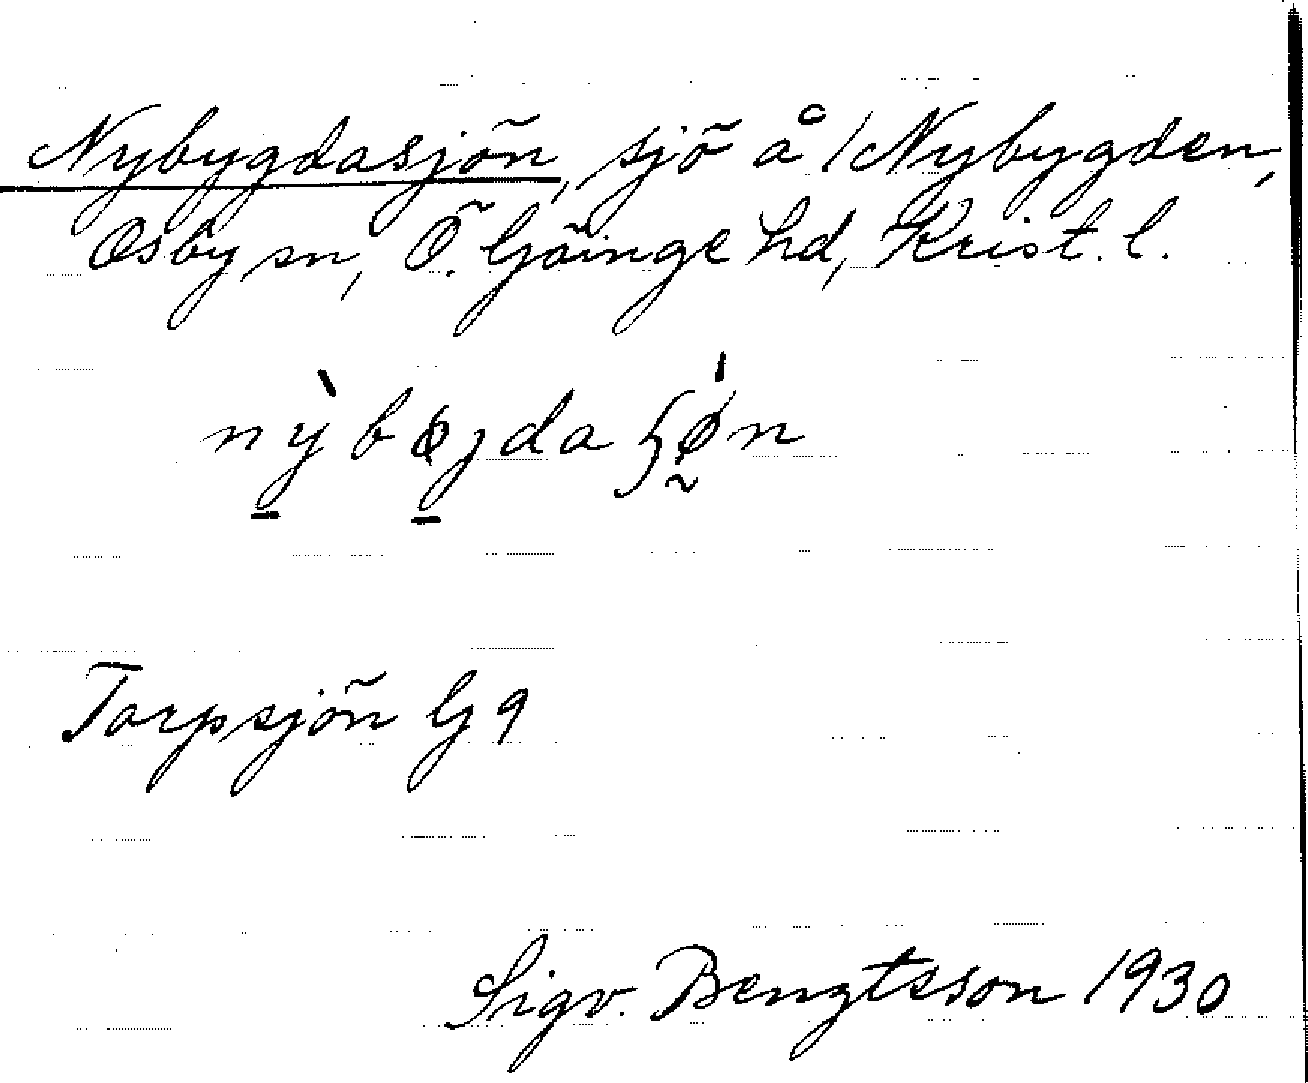 Nybygdasjön, sjö å Nybygden,
Osby sn, Ö. Göinge hd, Krist. l.
Torpsjön G 9
Sigv. Bengtsson 1930